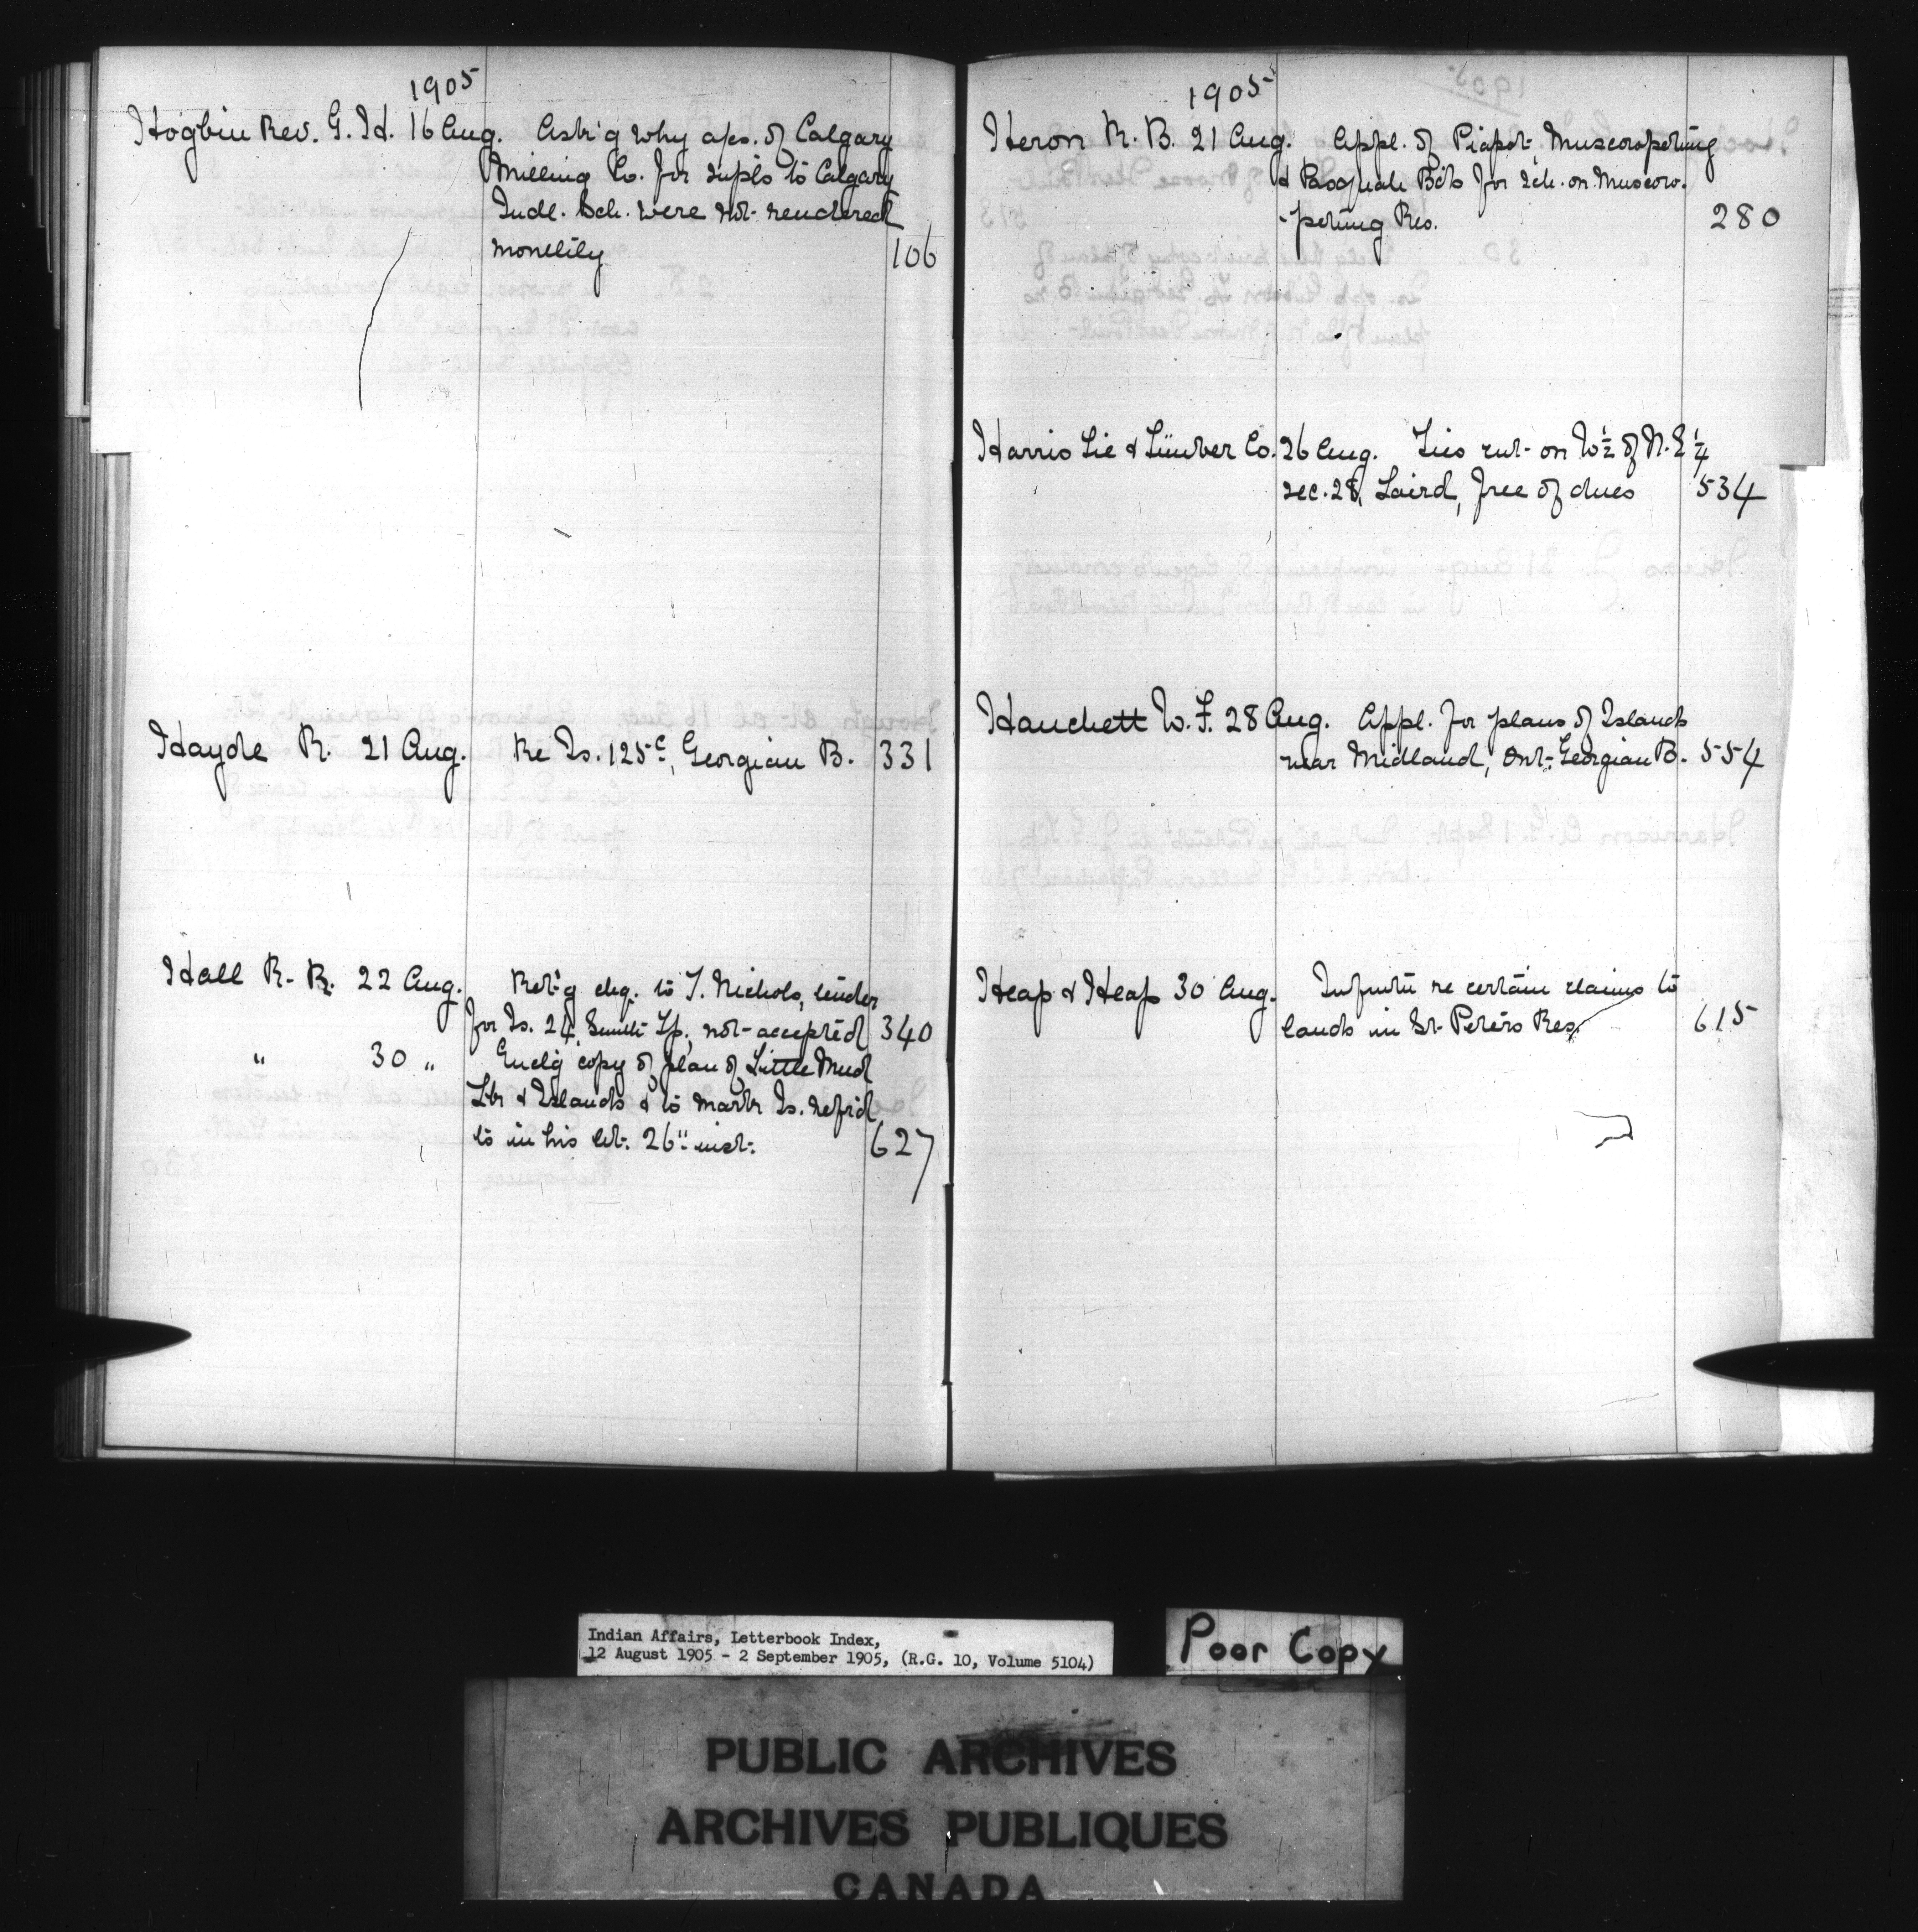 1905
Hogbin Rev. G. H. 16 Aug. Ask'g why a/cs. of Calgary
Milling Co. for supls to Calgary
Indl. Sch. were not rendered
monthly 106
Hayde R. 21 Aug. Re Is. 125c, Georgian B. 331
Hall R. R. 22 Aug. Ret'g chq. to T. Nichols, tender
for Is. 24, Smith Tp., not accepted 340
" 30 " Encl'g copy of plan of Little Mud
Lk & Islands & to mark Is. ref'd
to in his let. 26" inst. 627
1905
Heron R. B. 21 Aug. Appl. of Piapot, Muscowpetung
& Pasquah Bds for sch. on Muscow-
-petung Res. 280
Harris Tie & Timber Co. 26 Aug. Ties cut on W½ of N.E¼
sec. 28, Laird, free of dues 534
Hanchett W. F. 28 Aug. Appl. for plans of Islands
near Midland, Ont. Georgian B. 554
Heap & Heap 30 Aug. Infmtn re certain claims to
lands in St. Peters Res. 615
Indian Affairs, Letterbook Index,
12 August 1905 - 2 September 1905, (R.G. 10, Volume 5104)
Poor Copy
PUBLIC ARCHIVES
ARCHIVES PUBLIQUES
CANADA